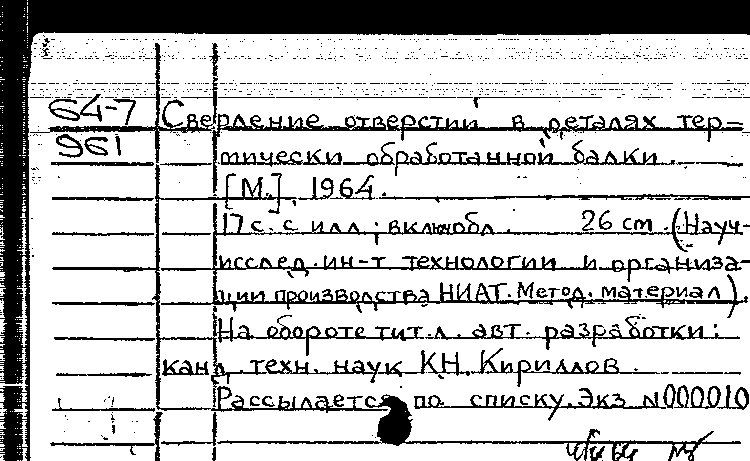 64-7 Сверление отверстий в деталях тер=
961 мически обработанной балки.
[М.], 1964.
17 с. с илл; включ обл. 26 см. (Науч-
исслед. ин-т технологии и организа-
ции производства НИАТ. Метод. материал).
На обороте тит. л. авт. разработки:
канд. техн. наук К.Н. Кириллов.
Рассылается по списку. Экз N000010